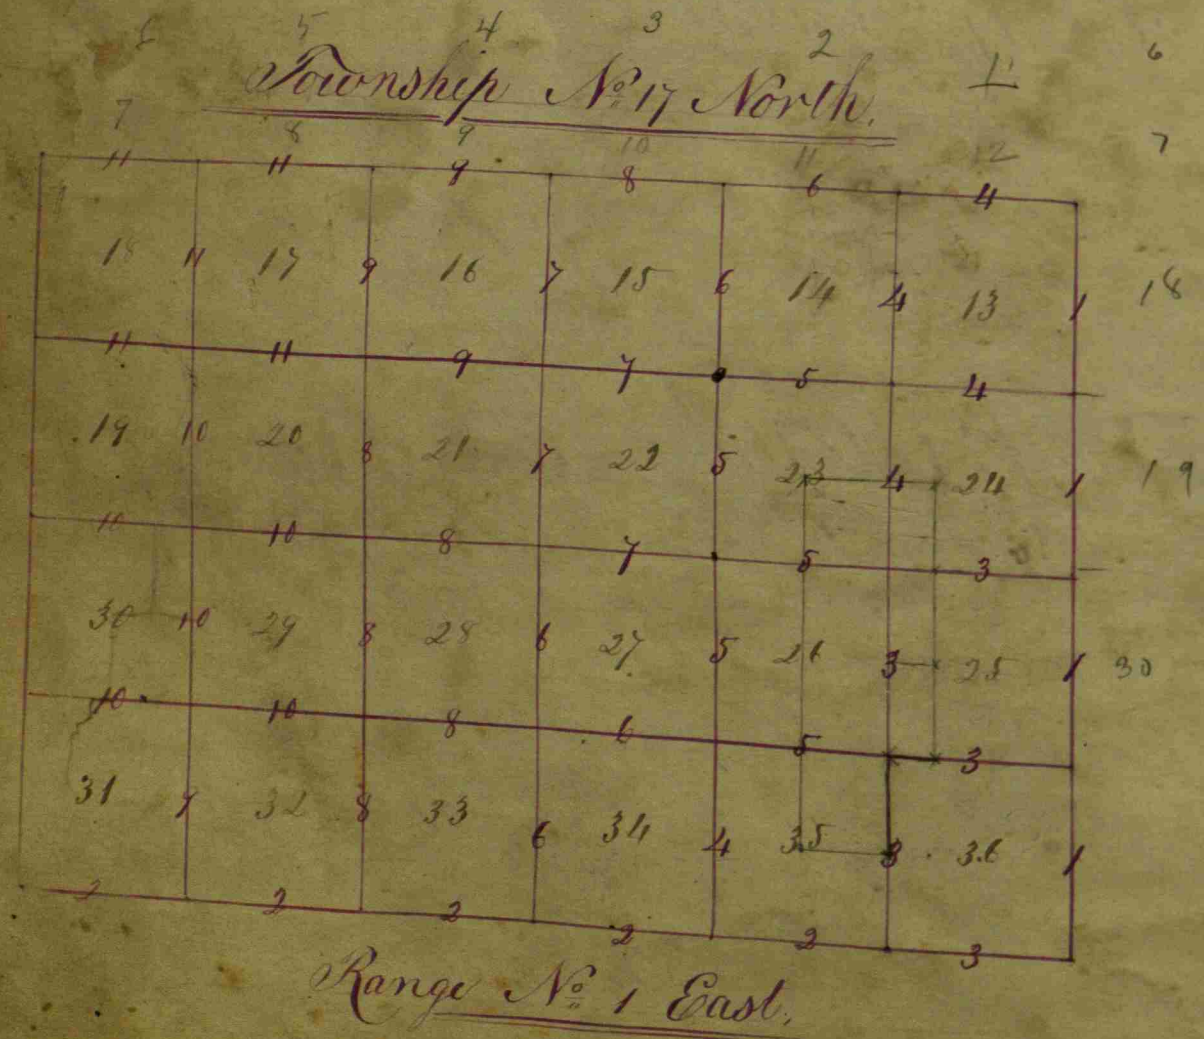 6 5 4 3 2 1 6
Township No 17 North.
7 8 9 10 11 12 7
11 11 9 8 6 4
18 11 17 9 16 7 15 6 14 4 13 1 18
11 11 9 7 5 4
19 10 20 8 21 7 22 5 23 4 24 1 19
11 10 8 7 5 3
30 10 29 8 28 6 27 5 26 3 25 1 30
10 10 8 6 5 3
31 9 32 8 33 6 34 4 35 3 36 1
2 2 2 2 2 3
Range No 1 East.